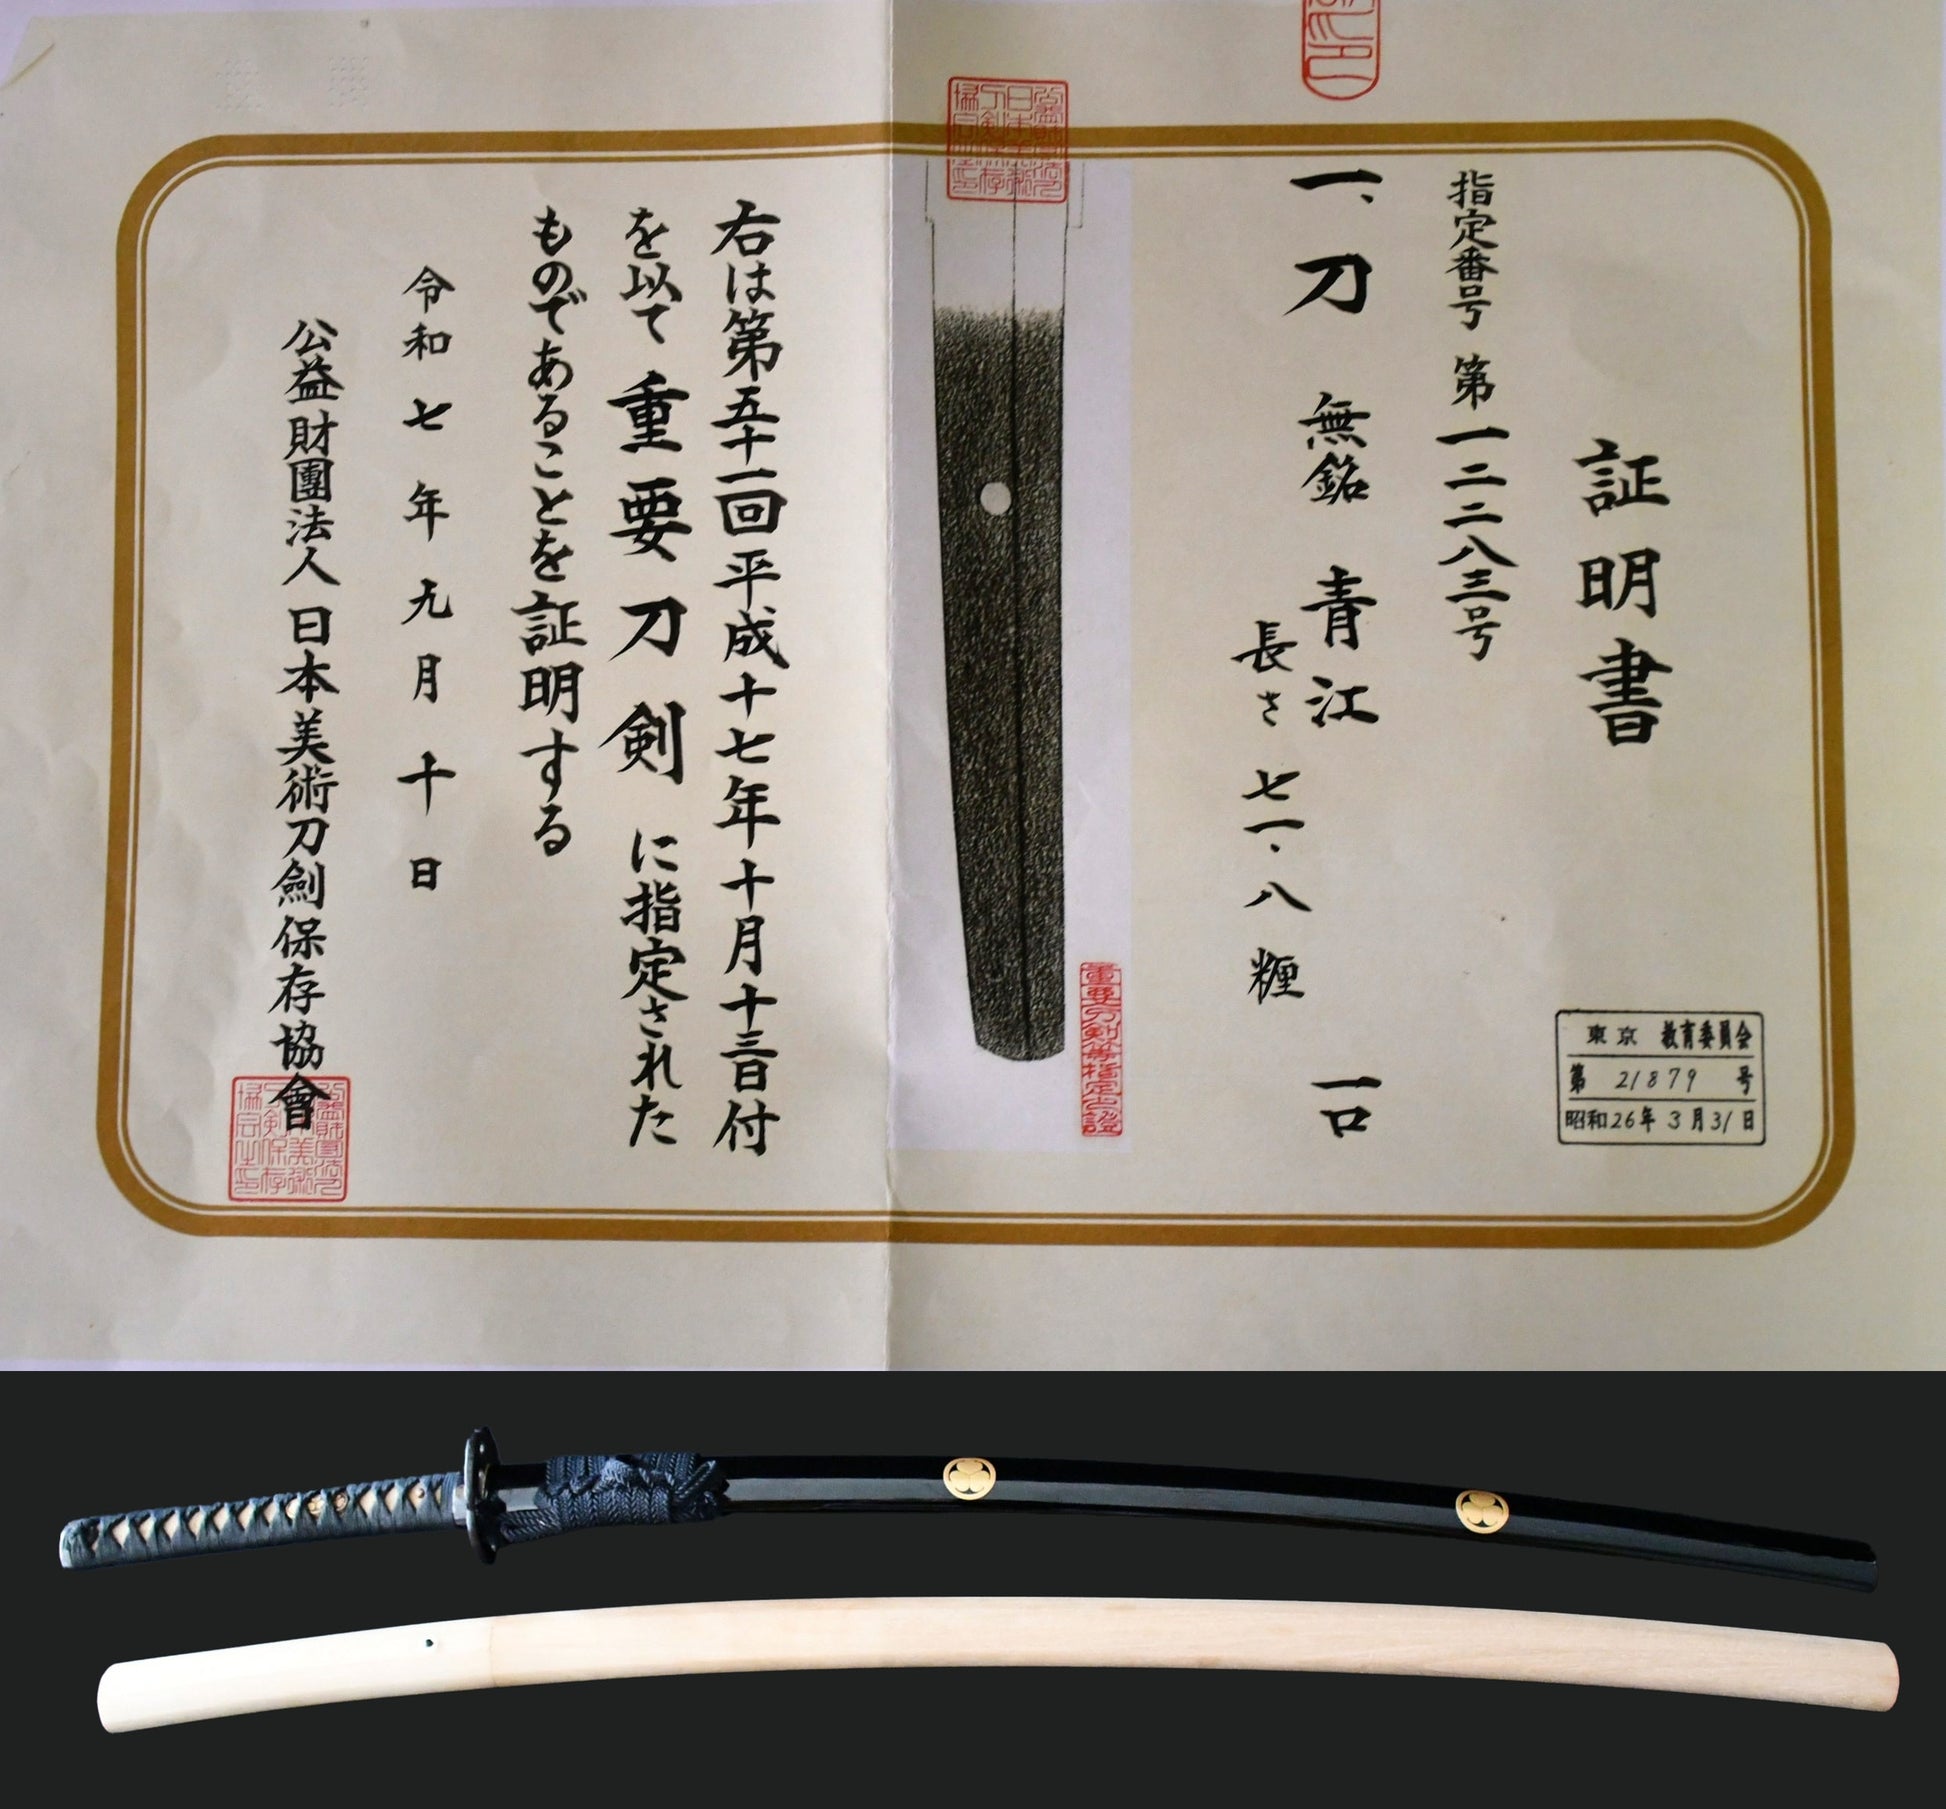 証明書
指定番号 第一二二八三号
一、刀 無銘 青江 一口
長さ 七一・八糎
東京 教育委員会
第 21879 号
昭和26年3月31日
重要刀剣等指定之證
右は第五十一回平成十七年十月十三日付
を以て重要刀剣に指定された
ものであることを証明する
令和七年九月十日
公益財團法人日本美術刀劍保存協會